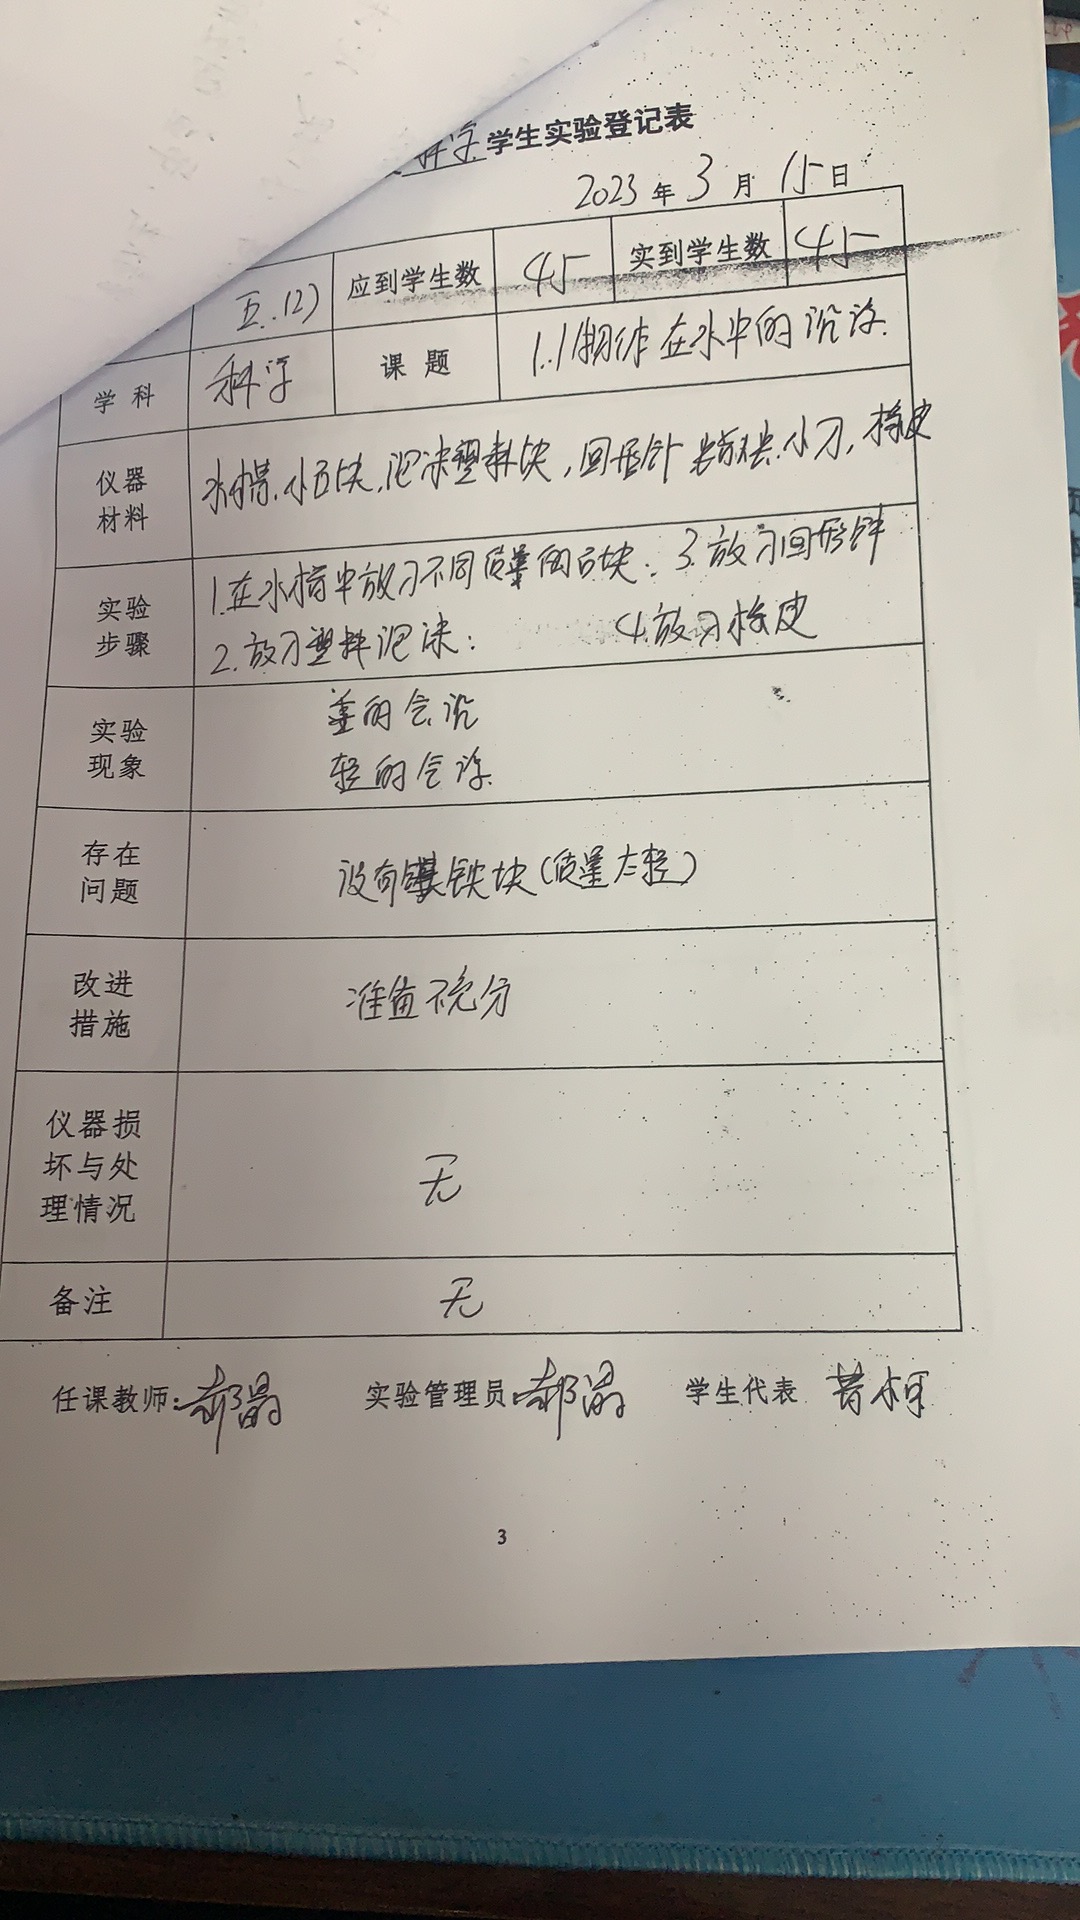 科学学生实验登记表
2023年3月15日
五.(2) 应到学生数 45 实到学生数 45
学科 科学 课题 1.1物体在水中的沉浮.
仪器材料 水槽.小石块.泡沫塑料块,回形针 小刀,橡皮
实验步骤 1.在水槽中放入不同质量的石块. 3.放入回形针
2.放入塑料泡沫: 4.放入橡皮
实验现象 重的会沉
轻的会浮
存在问题 没有铁块(质量太轻)
改进措施 准备不充分
仪器损坏与处理情况 无
备注 无
任课教师:郝晶 实验管理员 郝晶 学生代表
3